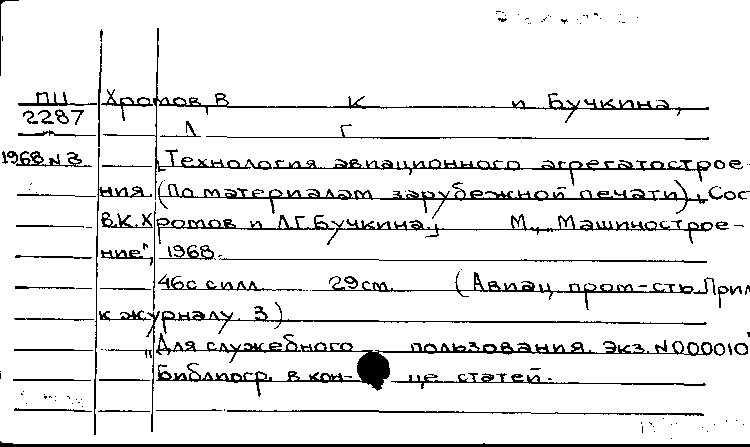 ПЦ Хромов, В К и Бучкина,
2287 Л Г
1968 N 3 „Технология авиационного агрегатострое-
ния. (По материалам зарубежной печати). Сос
В.К.Хромов и Л.Г.Бучкина. М., „Машинострое-
ние", 1968.
46с с илл. 29см. (Авиац. пром-сть. Прил
к журналу. 3)
„Для служебного пользования. Экз. N000010"
Библиогр. в кон- це статей.